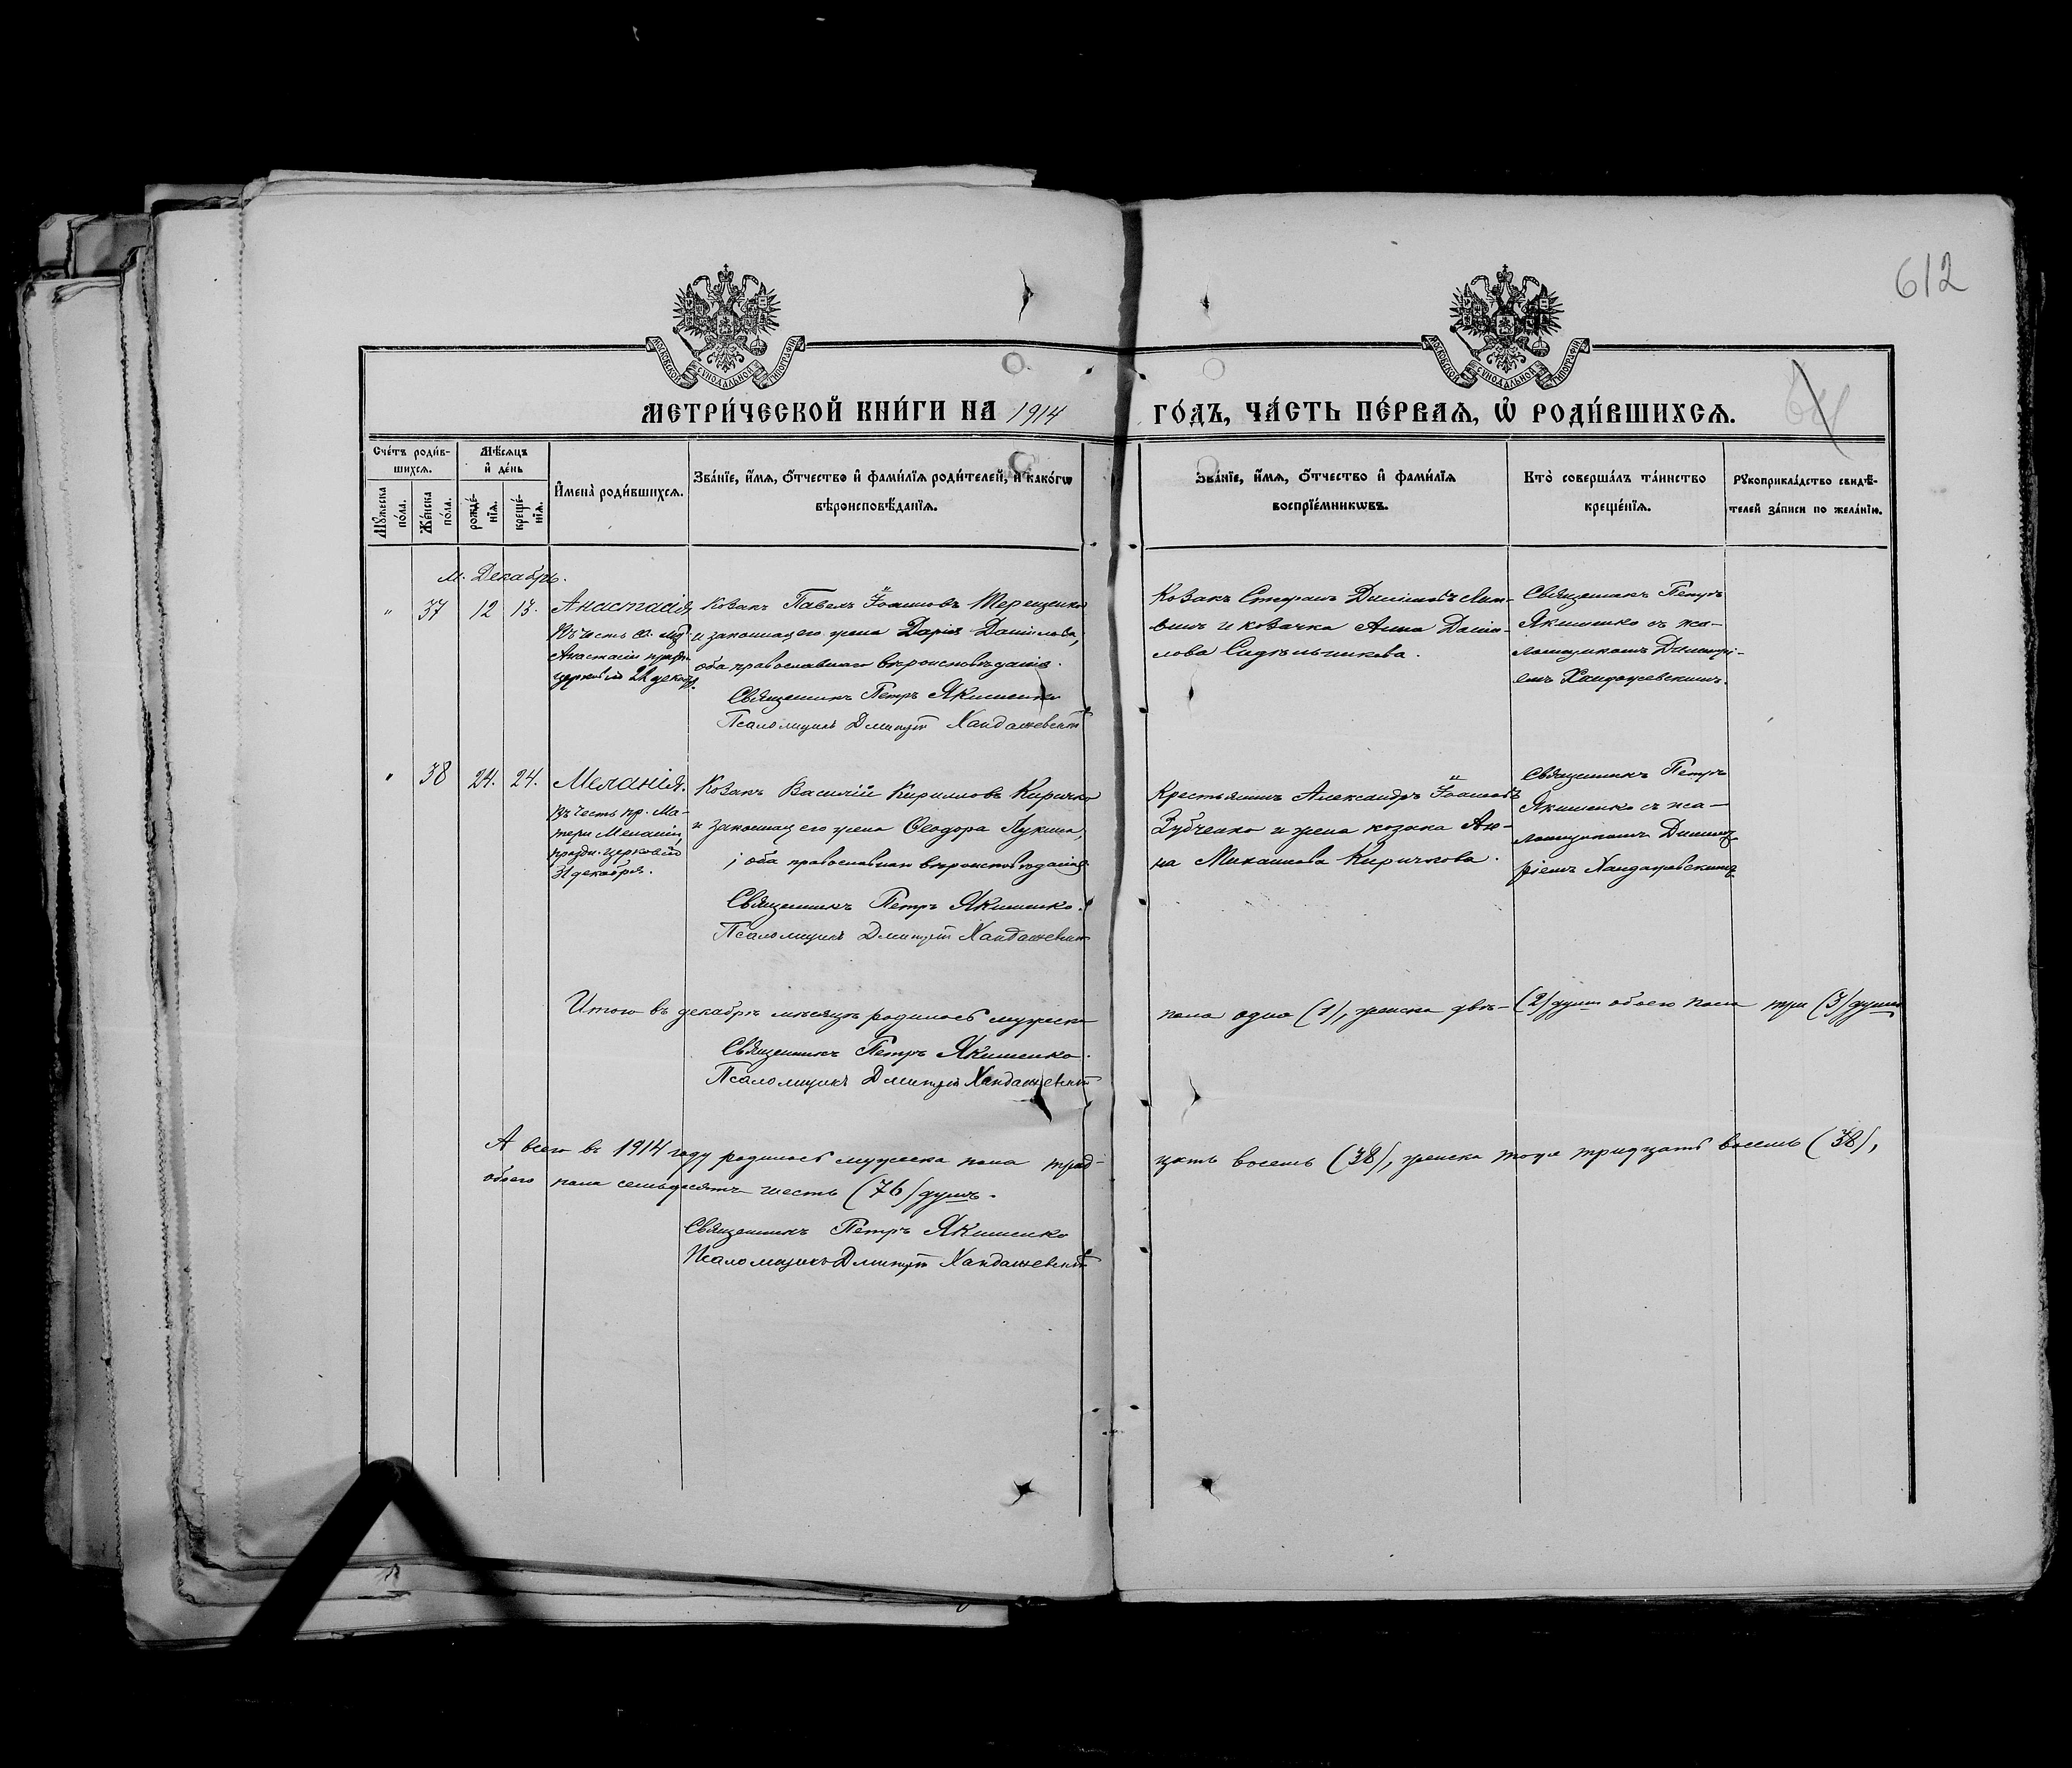 612
МОСКОВСКОЙ СѴНОДАЛЬНОЙ ТИПОГРАФІИ
МОСКОВСКОЙ СѴНОДАЛЬНОЙ ТИПОГРАФІИ
МЕТРИ́ЧЕСКОЙ КНИ́ГИ НА 1914
ГО́ДЪ, ЧА́СТЬ ПЕ́РВАѦ, Ѡ҆ РОДИ́ВШИХСѦ.
Сче́тъ роди́в-
шихсѧ.
Мꙋ́жеска по́ла.
Же́нска по́ла.
Мѣ́сѧцъ
и҆ де́нь
рожде́-
нїѧ.
креще́-
нїѧ.
И҆мена̀ роди́вшихсѧ.
Зва́нїе, и҆́мѧ, ѻ҆́тчество и҆ фами́лїѧ роди́телей, и҆ како́гѡ
вѣроисповѣ́данїѧ.
Зва́нїе, и҆́мѧ, ѻ҆́тчество и҆ фами́лїѧ
воспрїе́мникѡвъ.
Кто̀ соверша́лъ та́инство
креще́нїѧ.
Рꙋкоприкла́дство свидѣ́-
телей за́писи по жела́нїю.
м. Декабрь.
" 37 12 13. Анастасія,
въ честь св. мц.
Анастасіи праздн.
церковію 22 декабр.
Козакъ Павелъ Іоанновъ Терещенко
и законная его жена Дарія Даніилова,
оба православнаго вѣроисповѣданія.
Священникъ Петръ Якименко
Псаломщикъ Дмитрій Хандажевскій
Козакъ Стефанъ Лит-
винъ и козачка Анна Дани-
лова Сидѣльникова.
Священникъ Петръ
Якименко съ пса-
ломщикомъ Димитрі-
емъ Хандажевскимъ.
" 38 24. 24. Меланія.
въ честь пр. Ма-
тери Меланіи,
праздн. церковію
31 декабря.
Козакъ Василій Кирилловъ Киричко
и законная его жена Ѳеодора Лукина,
оба православнаго вѣроисповѣданія.
Священникъ Петръ Якименко.
Псаломщикъ Дмитрій Хандажевскій
Крестьянинъ Александръ Іоанновъ
Зубченко и жена козака Ан-
на Михаилова Киричкова.
Священникъ Петръ
Якименко съ пса-
ломщикомъ Димит-
ріемъ Хандажевскимъ
Итого въ декабрѣ мѣсяцѣ родилось мужеска
пола одна (1), женска двѣ (2) души обоего пола три (3) души
Священникъ Петръ Якименко.
Псаломщикъ Дмитрій Хандажевскій
А всего въ 1914 году родилось мужеска пола трид-
цать восемь (38), женска тоже тридцать восемь (38),
обоего пола семьдесятъ шесть (76) душъ.
Священникъ Петръ Якименко
Псаломщикъ Дмитрій Хандажевскій